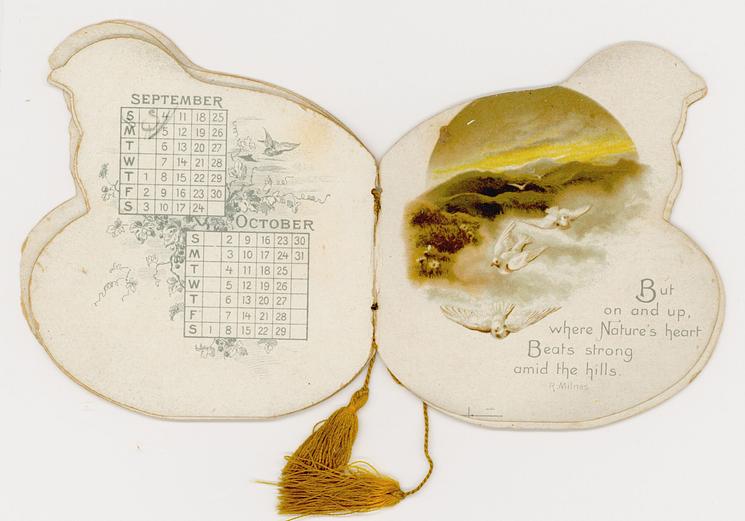 SEPTEMBER
S 4 11 18 25
M 5 12 19 26
T 6 13 20 27
W 7 14 21 28
T 1 8 15 22 29
F 2 9 16 23 30
S 3 10 17 24
OCTOBER
S 2 9 16 23 30
M 3 10 17 24 31
T 4 11 18 25
W 5 12 19 26
T 6 13 20 27
F 7 14 21 28
S 1 8 15 22 29
But
on and up,
where Nature's heart
Beats strong
amid the hills.
R. Milnes